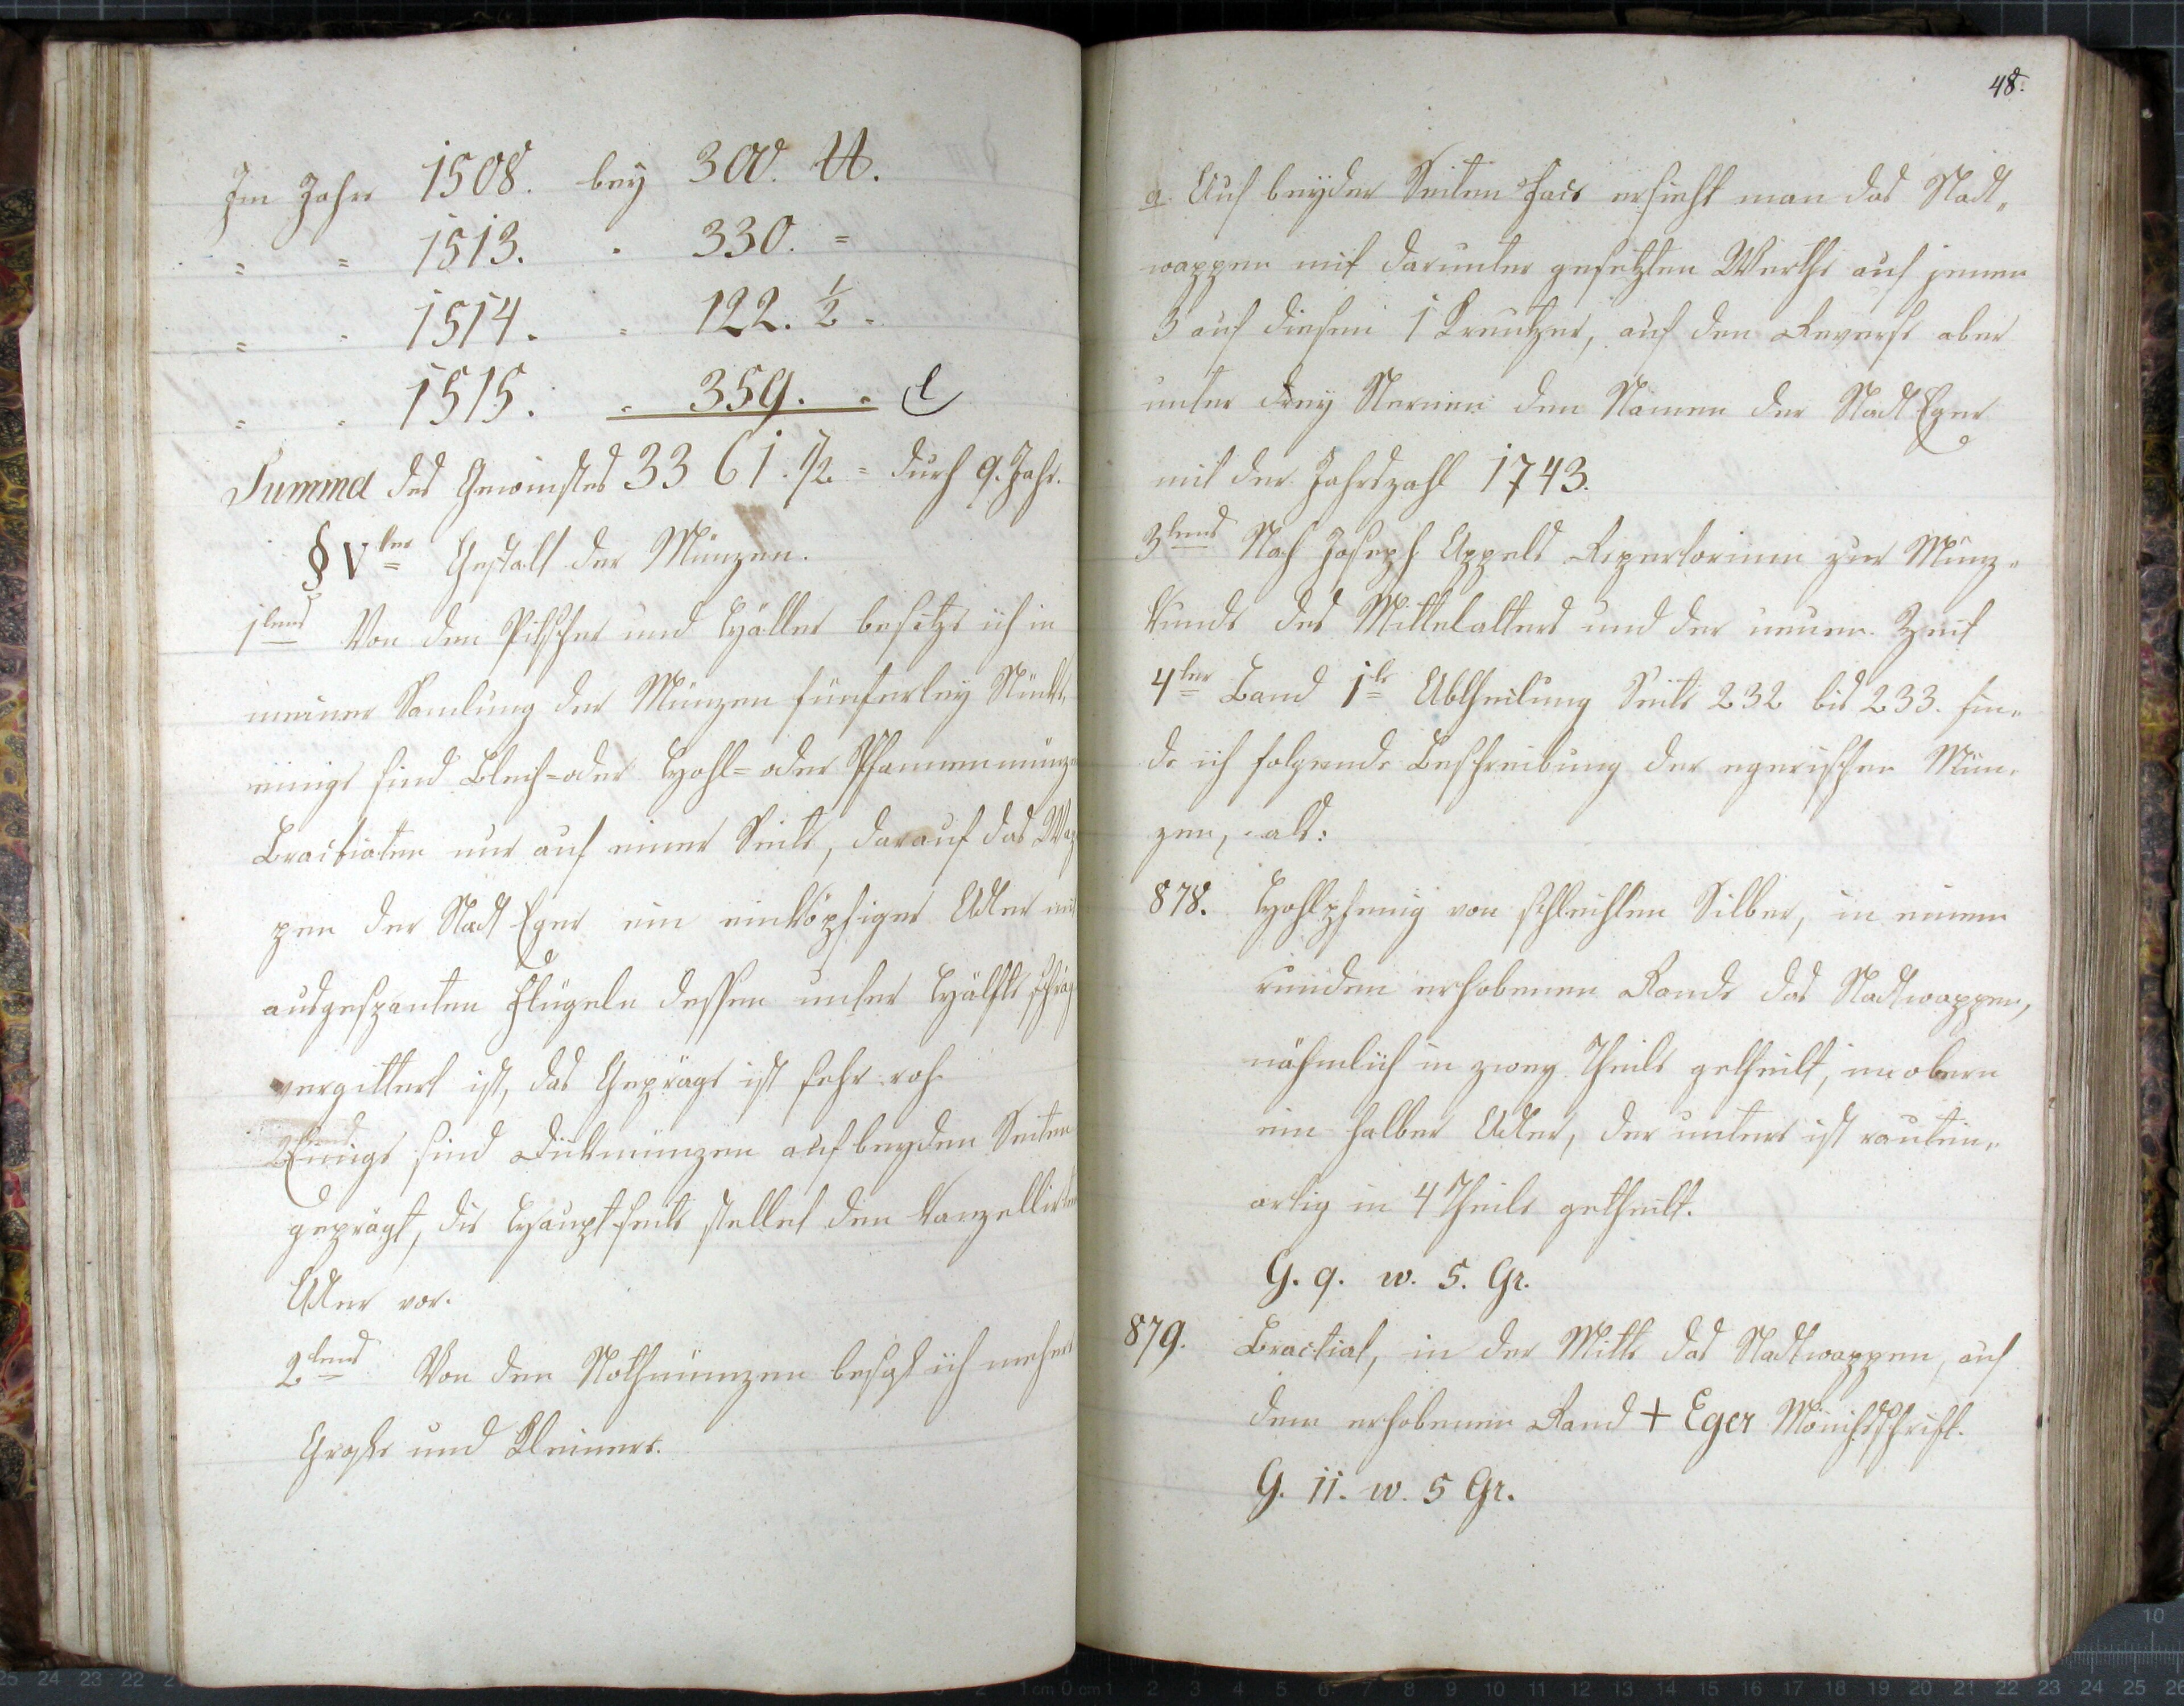 Im Jahre 1508. bey 300. ℔.
" " 1513. " 330. "
" " 1514. " 122. ½ "
" " 1515. " 359. "
Summa des Gewinstes 3361. ½ = durch 9. Jahr.
§ Vter Gestalt der Münzen.
1tens Von den Pitscher und Häller besitze ich in
meiner Samlung der Münzen fünferley Stücke,
einige sind Blech- oder Hohl- oder Pfannenmünze
Bractiaten nur auf einer Seite, darauf das Wap
pen der Stadt Eger ein einköpfiger Adler mit
ausgespanten Flügeln dessen unter Hälfte schräg
vergittert ist, das Gepräge ist sehr roh
Einige sind Dickmünzen auf beyden Seiten
geprägt, die Hauptseite stellet den
Adler vor.
2tens Von den Nothmünzen besitzt ich mehere
Große und Kleinere.
48.
a. Auf beyder Seiten Face ersieht man das Stadt„
wappen mit darunter gesetzten Werthe auf jenen
3 auf diesem 1 Kreutzer, auf den Reverse aber
unter drey Sternen den Namen der Stadt Eger
mit der Jahrszahl 1743.
3tens Nach Joseph Appels Repertorium zur Münz„
kunde des Mittelalters und der neuern Zeit
4ter Band 1te Abtheilung Seite 232 bis 233. fin„
de ich folgende Beschreibung der egerischen Mün„
zen, als:
878. Hohlpfenig von schlechten Silber, in einem
runden erhobenen Rande das Stadtwappen,
nähmlich in zwey Theile getheilt, im obern
ein halber Adler, der untere ist rauten„
artig in 4 Theile getheilt.
G. 9. w. 5. Gr.
879. Bractiat, in der Mitte das Stadtwappen, auf
dem erhobenen Rand + Eger Mönichsschrift.
G. 11. w. 5 Gr.